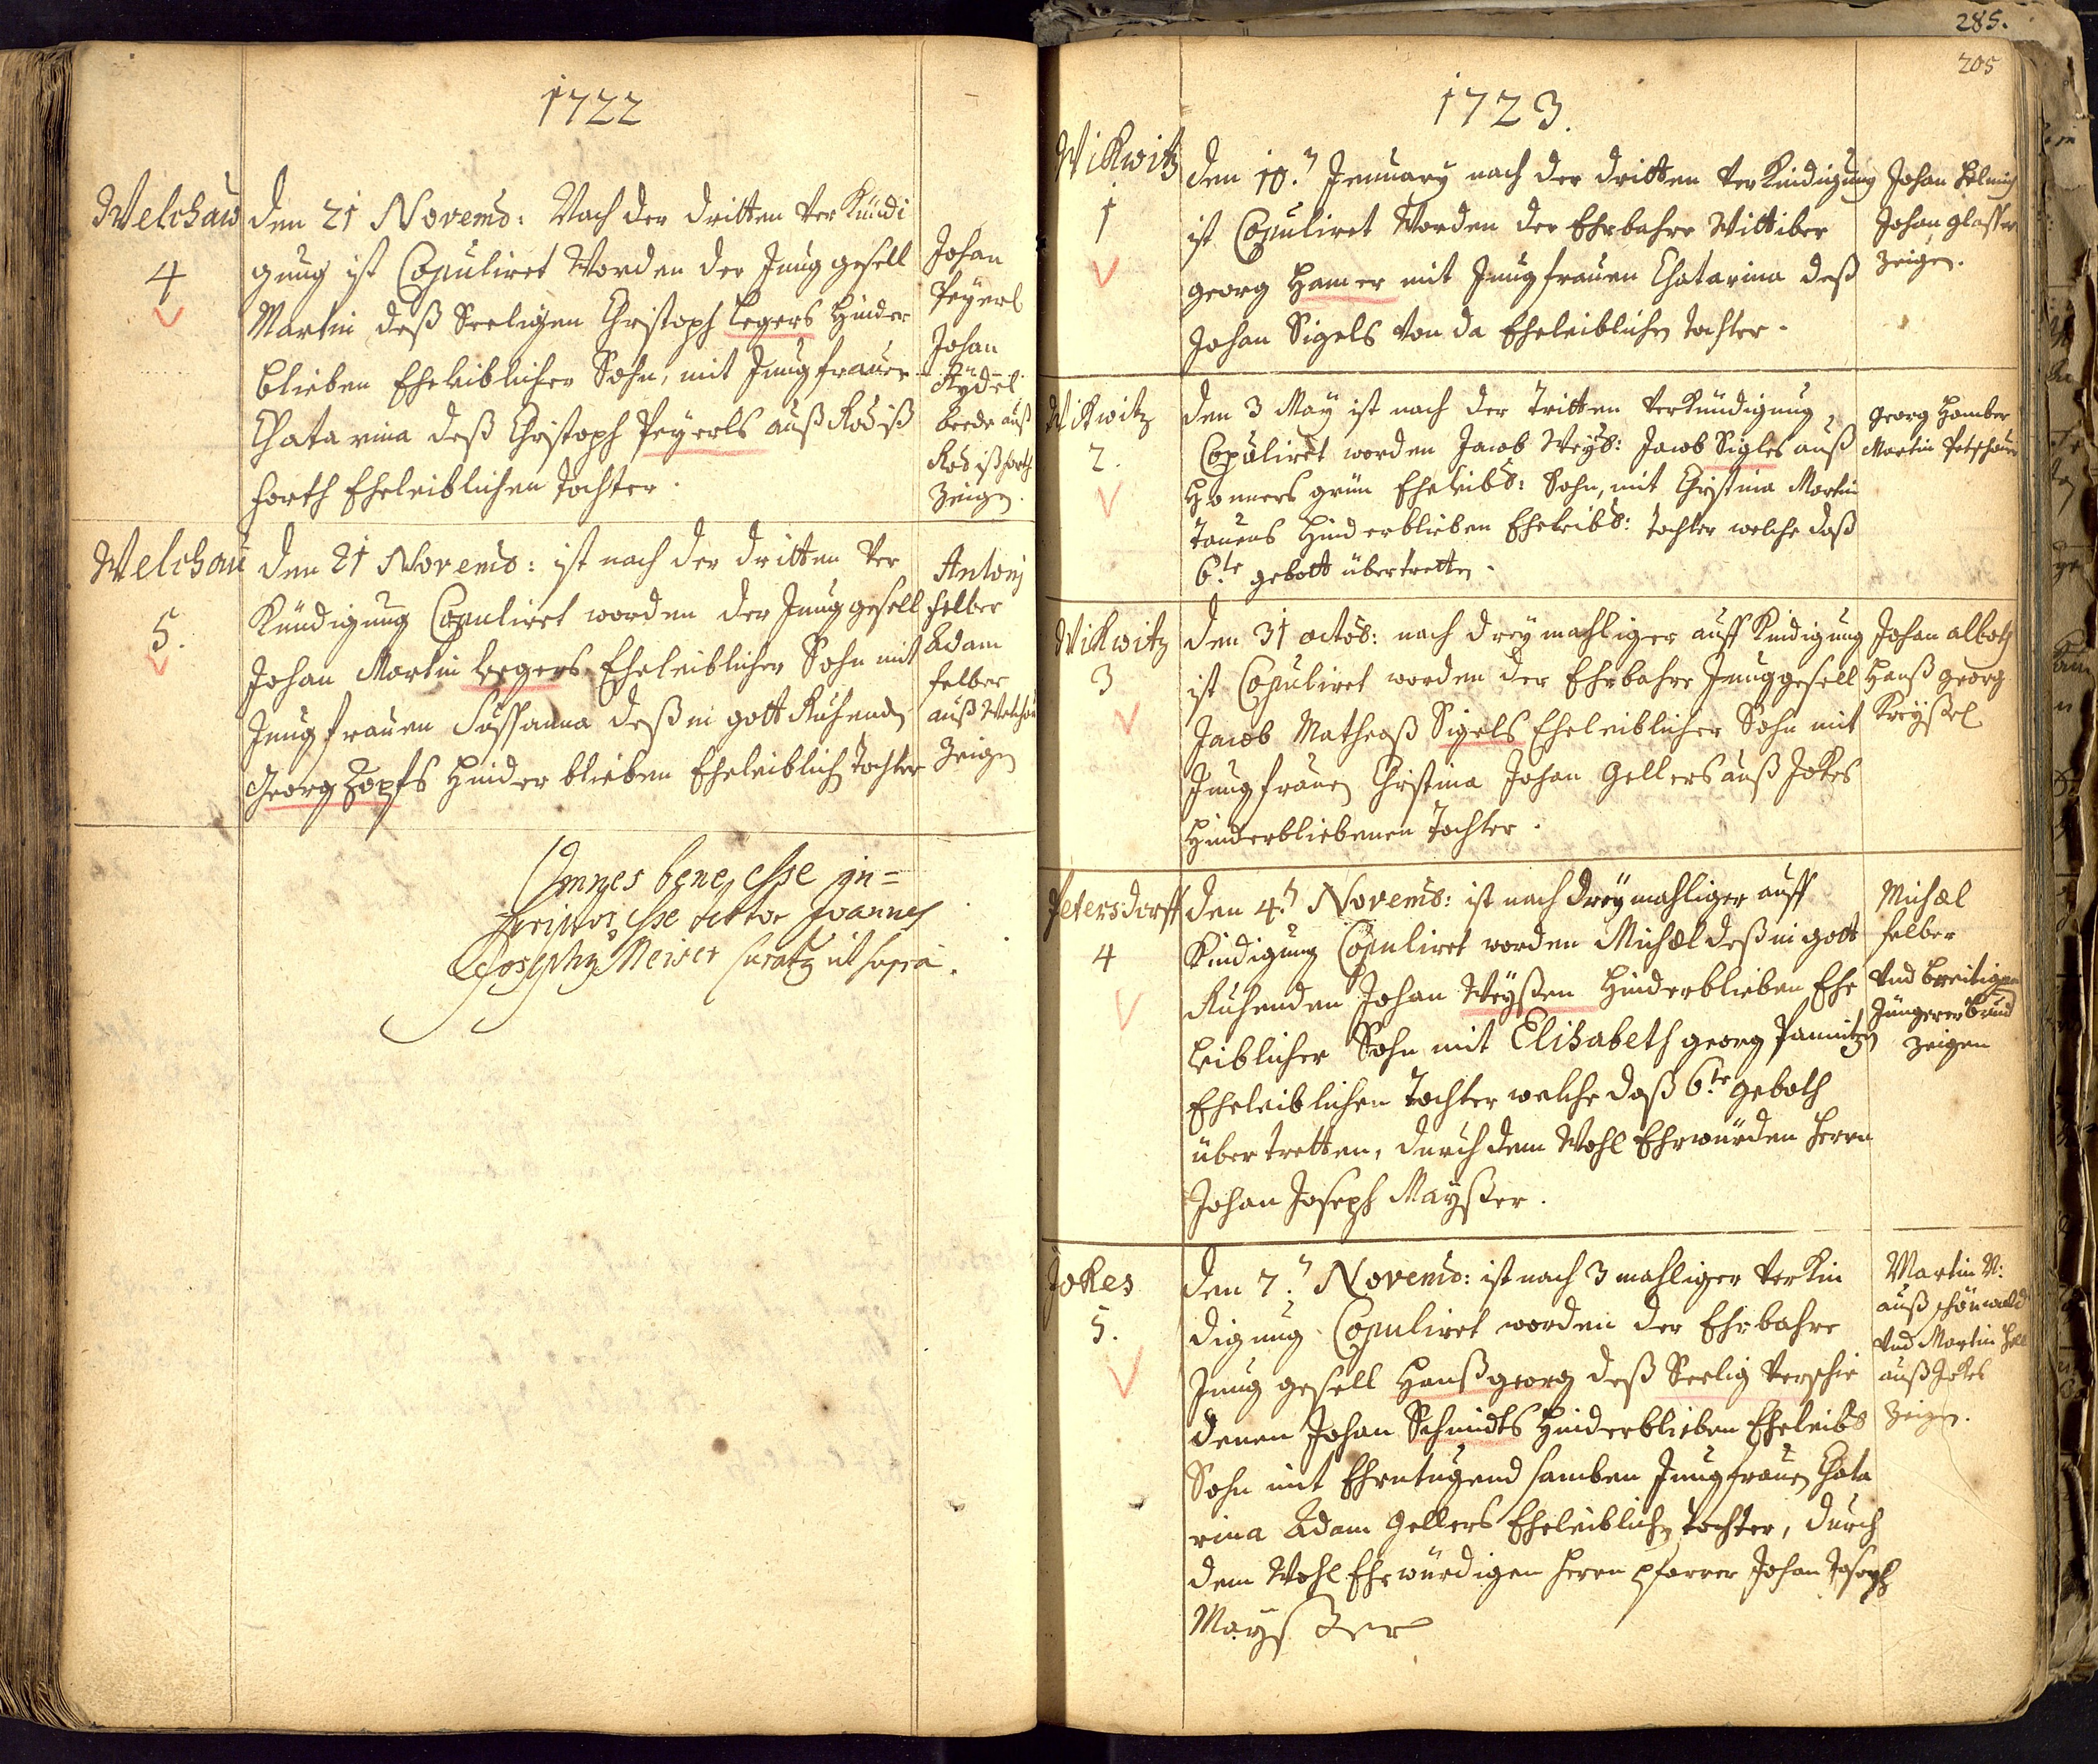 1722
Welchau
4
den 21 Novemb: Nach der dritten verKündi
gung ist Copuliret Worden der Jung gesell
Martin deß Seeligen Christoph Legers hinder
blieben Eheleiblicher Sohn, mit Jungfrauen
Chatarina deß Christoph Peyerls auß Rodiß
forth Eheleiblichen Tochter.
Johan
Peyerl
Johan
beede auß
Rodißforth
Zeigen.
Welchau
5.
den 21 Novemb: ist nach der dritten ver
Kündigung Copuliret worden der Jung gesell
Johan Martin Legers Eheleiblicher Sohn mit
Jungfrauen Sussanna deß in gott Ruhenden
Georg Zopfs hinder blieben Eheleiblich Tochter
Antonj
felber
Adam
felber
auß Welchau
Zeigen
Omnes bene esse in=
scriptos esse testor Joannes
Josephus Meiser Curatus ut supra.
285.
205
1723.
Wikwitz
1
den 10. Jenuary nach der dritten verKindigung
ist Copuliret Worden der Ehrbahre Wittiber
georg Hamer mit Jungfrauen Chatarina deß
Johan Sigels von da Eheleiblichen tochter.
Johan
Johan glasser
Zeigen.
Wikwitz
2.
den 3 May ist nach der Tritten verkündigung
Copuliret worden Jacob Weyb: Jacob Sigles auß
Honnersgrün Eheleibl: Sohn, mit Christina Martin
hinderblieben Eheleibl: tochter welche daß
6.te gebott übertretten.
georg Hamber
Martin Petschauer
Wikwitz
3
den 31 octob: nach dreymahliger auff Kindigung
ist Copuliret worden der Ehrbahre Junggesell
Jacob Matheaß Sigels Eheleiblicher Sohn mit
Jungfrauen Christina Johan Gellers auß Jokes
hinderbliebenen Tochter.
Johan alboth
Hanß georg
Petersdorff
4
den 4. Novemb: ist nach dreymahliger auff
Kindigung Copuliret worden Michael deß in gott
Ruhenden Johan Weyßen hinderblieben Ehe
leiblicher Sohn mit Elisabeth georg
Eheleiblichen Tochter welche daß 6.te geboth
übertretten, durch dem Wohl Ehrwürden Herrn
Johan Joseph Maysser.
Michael
felber
Zeigen
Jokes
5.
den 7. Novemb: ist nach 3 mahliger verKin
digung Copuliret worden der Ehrbahre
Jung gesell Hanßgeorg deß Seelig verschie
denen Johan Schmidts hinderblieben Eheleibl
Sohn mit Ehrntugend samben Jungfrauen Chata
rina Adam Gellers Eheleiblichen tochter, durch
dem Wohl Ehrwürdigen Herrn pfarrer Johan Joseph
Maysser
Martin N:
auß schönwald
und Martin
auß Jokes
Zeigen.